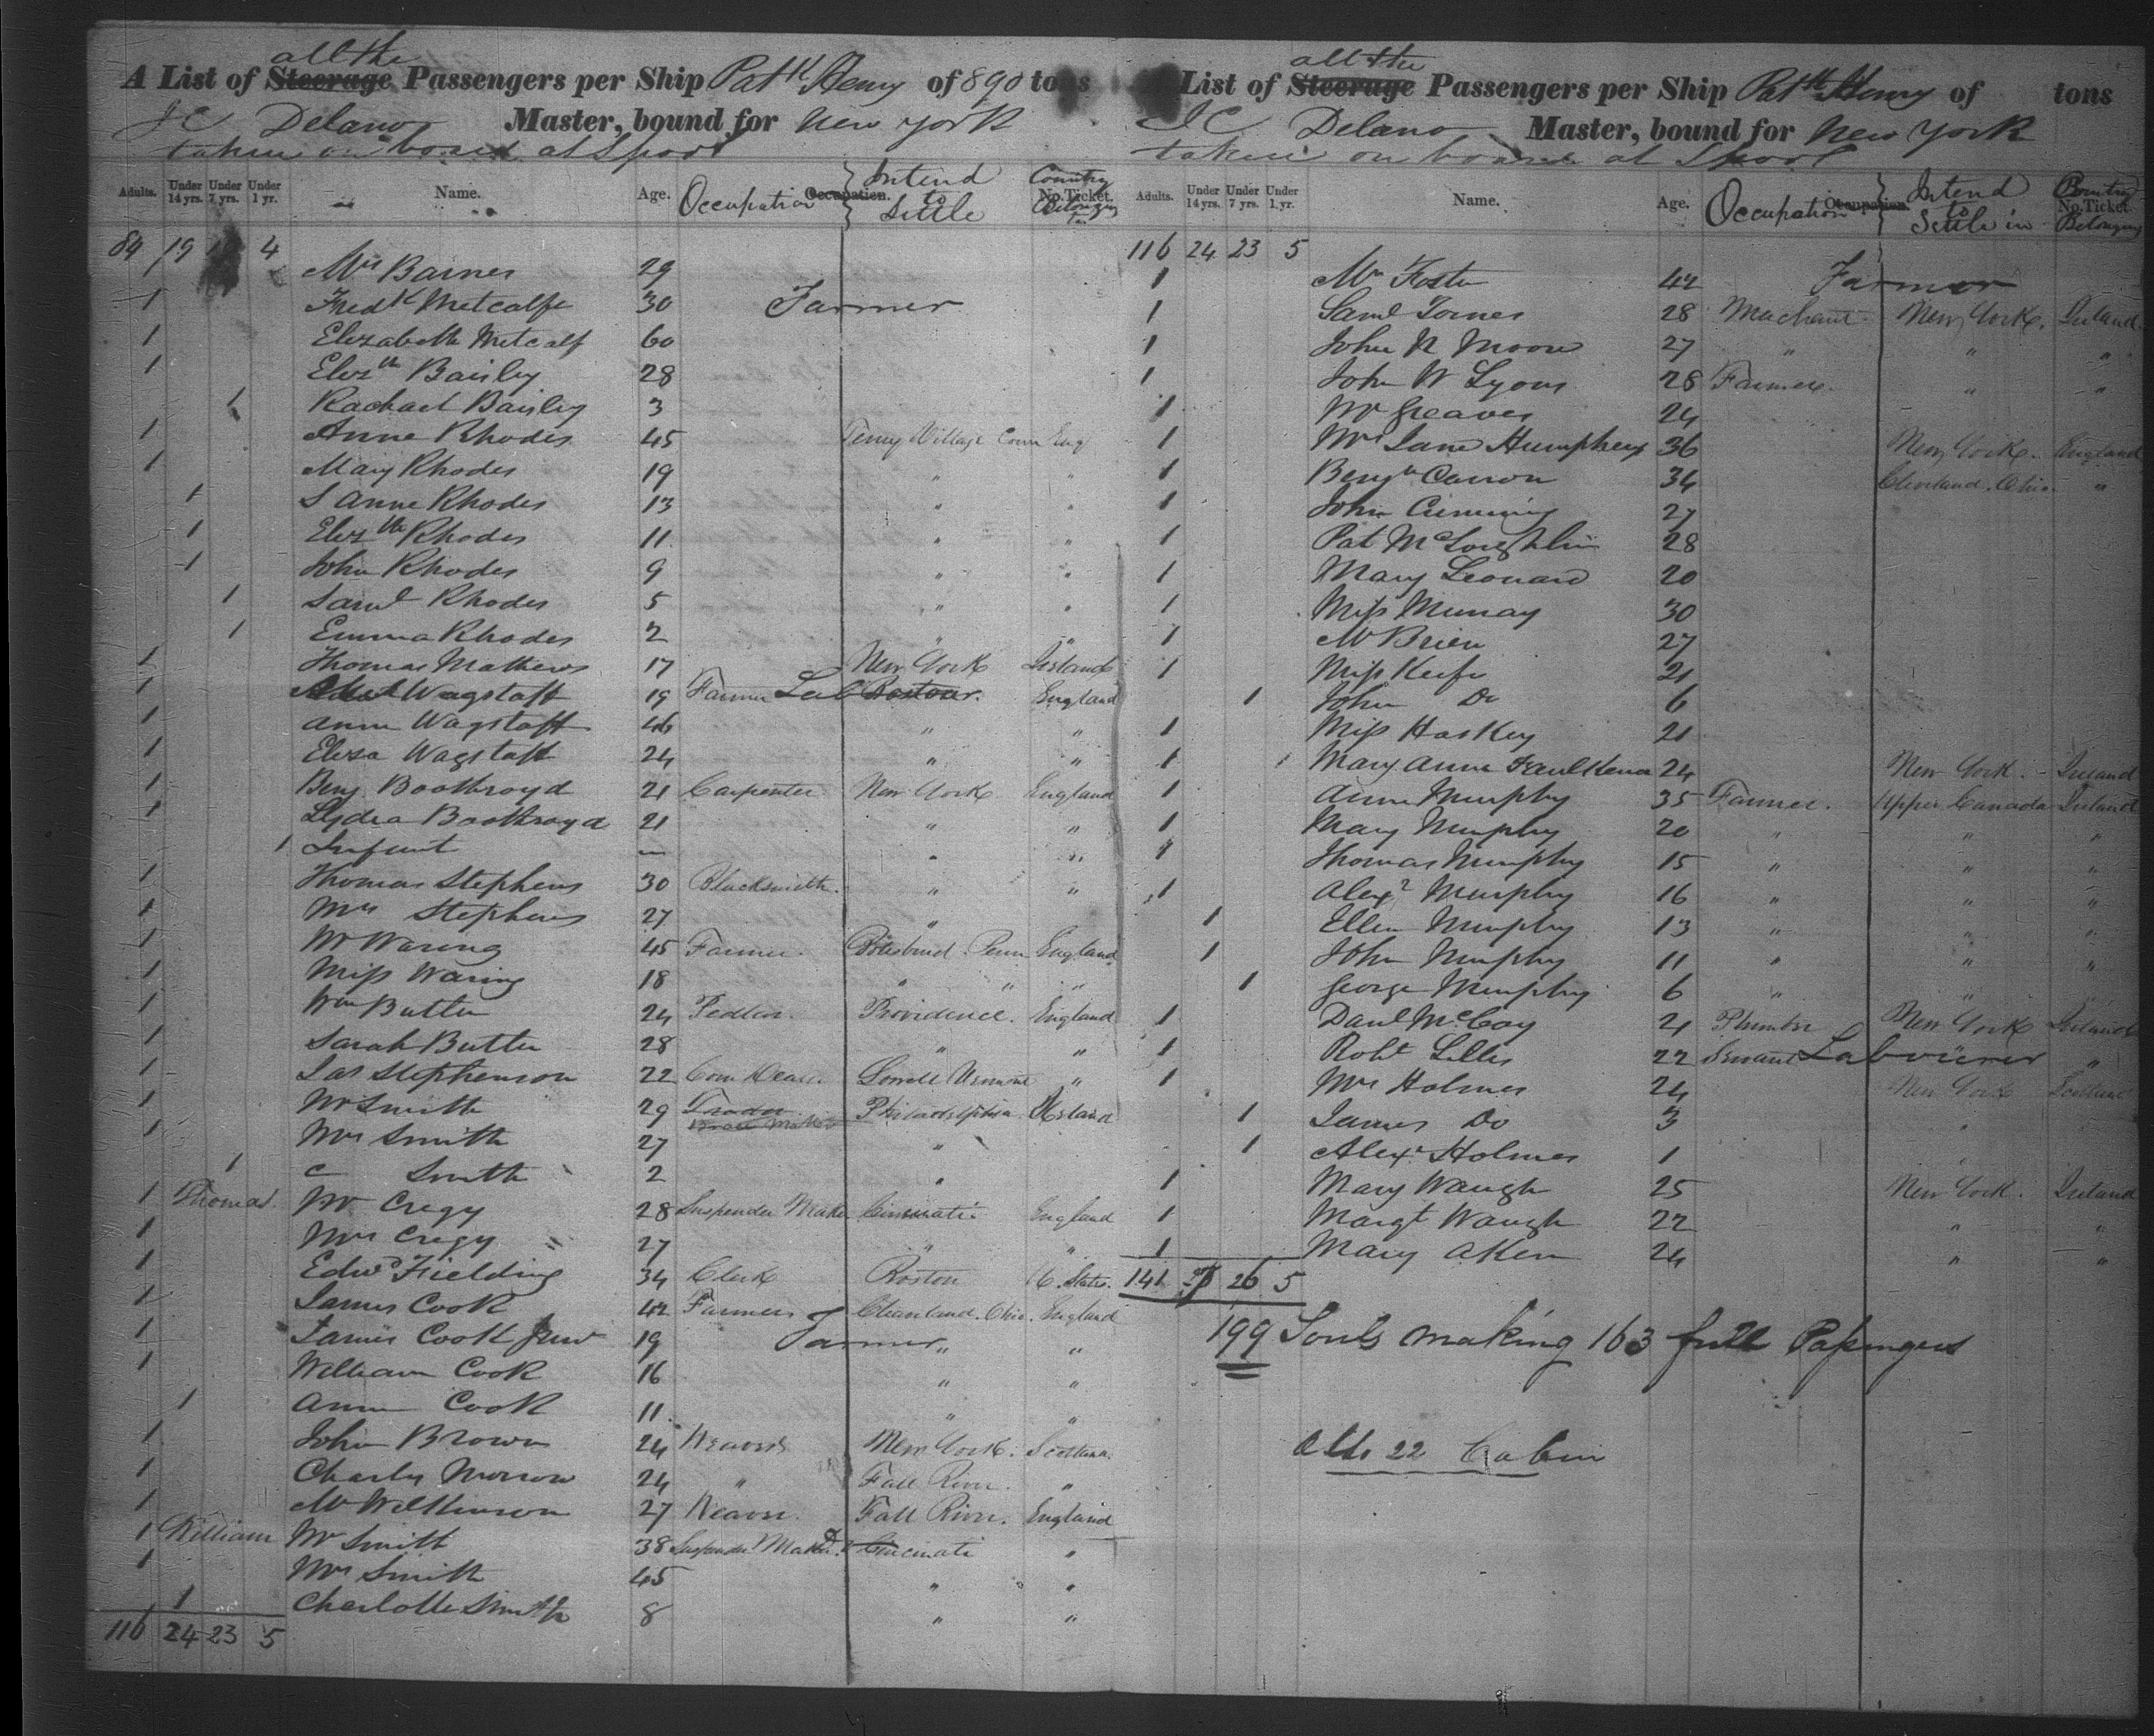 all the
A List of Steerage Passengers per Ship Patk Henry of 890 tons
J C Delano Master, bound for New York
taken on board at Lpool
Adults. Under 14 yrs. Under 7 yrs. Under 1 yr. Name. Age. Occupation Occupation. Intend to Settle Country No. Ticket. Belonging to
84 19 4
Mrs Barnes 29
1 Fredk Metcalfe 30 Farmer
1 Elizabeth Metcalf 60
1 Elizth Bairley 28
1 Rachael Bairley 3
1 Anne Rhodes 45 Village Conn Eng
1 Mary Rhodes 19 " "
1 S Anne Rhodes 13 " "
1 Elizth Rhodes 11 " "
1 John Rhodes 9 " "
1 Saml Rhodes 5 " "
1 Emma Rhodes 2 " "
1 Thomas Mathews 17 New York Ireland
1 Wagstaff 19 Farmer Lab Boston. England
1 Anne Wagstaff 46 " "
1 Eliza Wagstaff 24 " "
1 Benj. Boothroyd 21 Carpenter New York England
1 Lydia Boothroyd 21 " "
1 Infant — " "
1 Thomas Stephens 30 Blacksmith. " "
1 Mrs Stephens 27 "
1 Mr Waring 45 Farmer. Penn England
1 Miss Waring 18 " " "
1 Wm Butler 24 Pedlar. Providence. England
1 Sarah Butler 28 " "
1 Jas Stephenson 22 Lowell Vermont "
1 Mr Smith 29 Trader Philadelphia Ireland
1 Mrs Smith 27 "
1 C Smith 2 "
1 Thomas. Mr Cregy 28 Suspender Maker Cincinati England
1 Mrs Cregy 27 " "
1 Edwd Fielding 34 Clerk Boston U. States.
1 James Cook 42 Farmers Cleanland. Ohio. England
1 James Cook Junr 19 Farmer " "
1 William Cook 16 " "
1 Anne Cook 11 " "
1 John Brown 24 Weaver New York. Scotland.
1 Charles Morrow 24 " Fall River. "
1 Mr Wilkinson 27 Weaver. Fall River. England
1 William Mr Smith 38 Suspender Maker. Cincinati "
1 Mrs Smith 45 " "
1 Charlotte Smith 8 " "
116 24 23 5
all the
List of Steerage Passengers per Ship Patk Henry of tons
J C Delano Master, bound for New York
taken on board at Lpool
Adults. Under 14 yrs. Under 7 yrs. Under 1 yr. Name. Age. Occupation Occupation Intend to Settle in Country No. Ticket Belonging
116 24 23 5
1 Mr Foster 42 Farmer
1 Saml Tornes 28 Machant New York. Ireland.
1 John R Moore 27 " " "
1 John W Lyons 28 Farmer. " "
1 Mr Greaves 24
1 Mrs Jane Humphreys 36 New York. England
1 Benjn Carron 34 Cleveland. Ohio. "
1 John Cumming 27
1 Pat McLoughlin 28
1 Mary Leonard 20
1 Miss Murray 30
1 Mr Brien 27
1 Miss Keife 21
1 John Do 6
1 Miss Haskey 21
1 Mary Anne Faulkena 24 New York. Ireland
1 Anne Murphy 35 Farmer. Upper Canada Ireland
1 Mary Murphy 20 " " "
1 Thomas Murphy 15 " " "
1 Alexr Murphy 16 " " "
1 Ellen Murphy 13 " " "
1 John Murphy 11 " " "
1 George Murphy 6 " "
1 Danl McCoy 21 Plumber New York Ireland
1 Robt Lilles 22 Servant Labourer "
1 Mrs Holmes 24 New York Scotland
1 James Do 3 "
1 Alexr Holmes 1
1 Mary Waugh 25 New York. Ireland
1 Margt Waugh 22 " "
1 Mary Aken 24 " "
141 26 5
199 Souls making 163 full Passengers
Also 22 Cabin